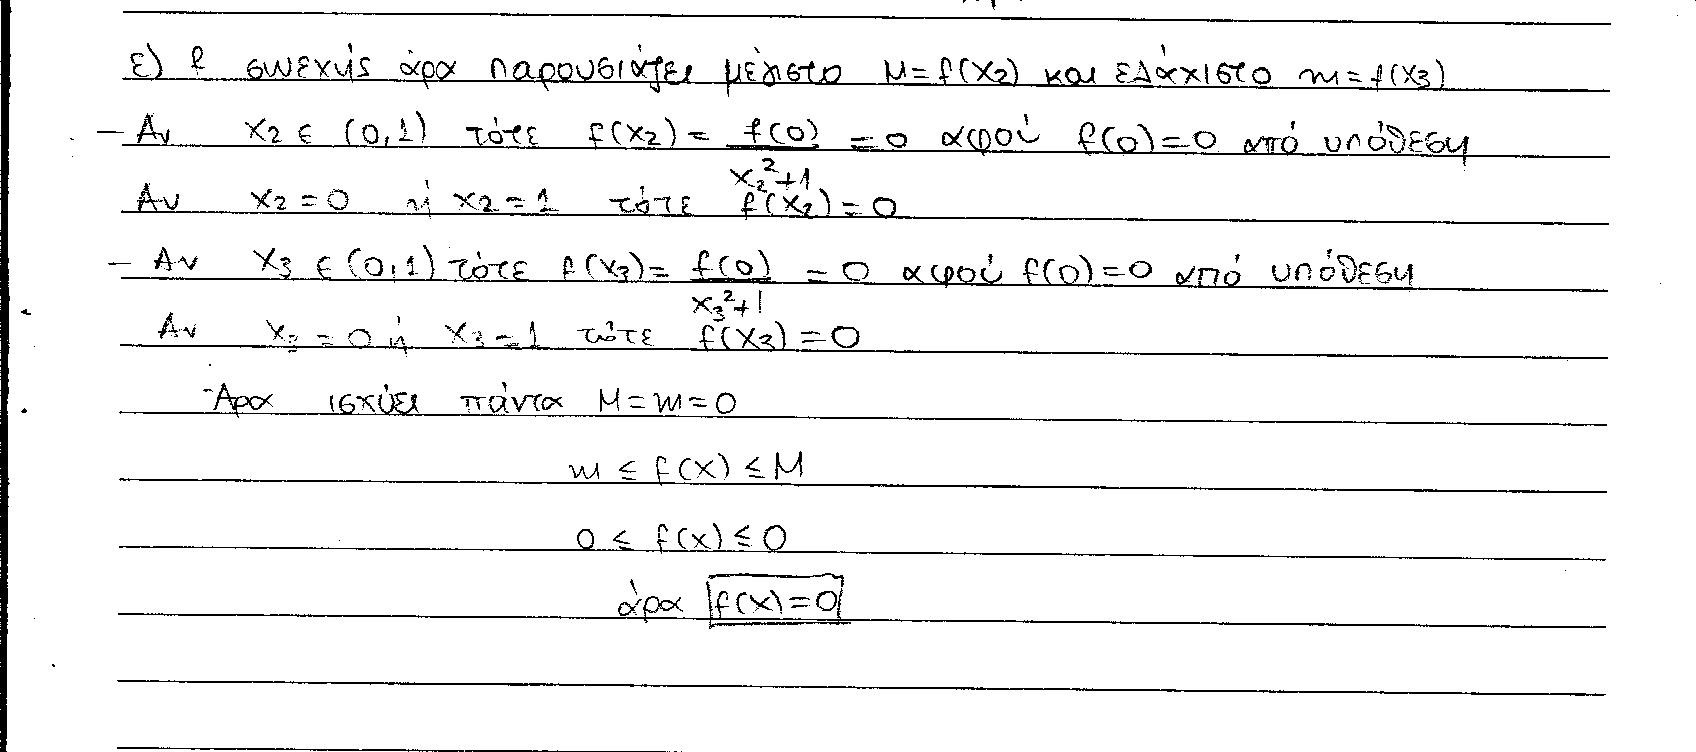 ε) f συνεχής άρα παρουσιάζει μέγιστο M=f(x₂) και ελάχιστο m=f(x₃)
- Αν x₂ ∈ (0,1) τότε f(x₂) = f(0)/(x₂²+1) = 0 αφού f(0)=0 από υπόθεση
Αν x₂=0 ή x₂=1 τότε f(x₂)=0
- Αν x₃ ∈ (0,1) τότε f(x₃) = f(0)/(x₃²+1) = 0 αφού f(0)=0 από υπόθεση
Αν x₃=0 ή x₃=1 τότε f(x₃)=0
Άρα ισχύει πάντα M=m=0
m ≤ f(x) ≤ M
0 ≤ f(x) ≤ 0
άρα f(x)=0